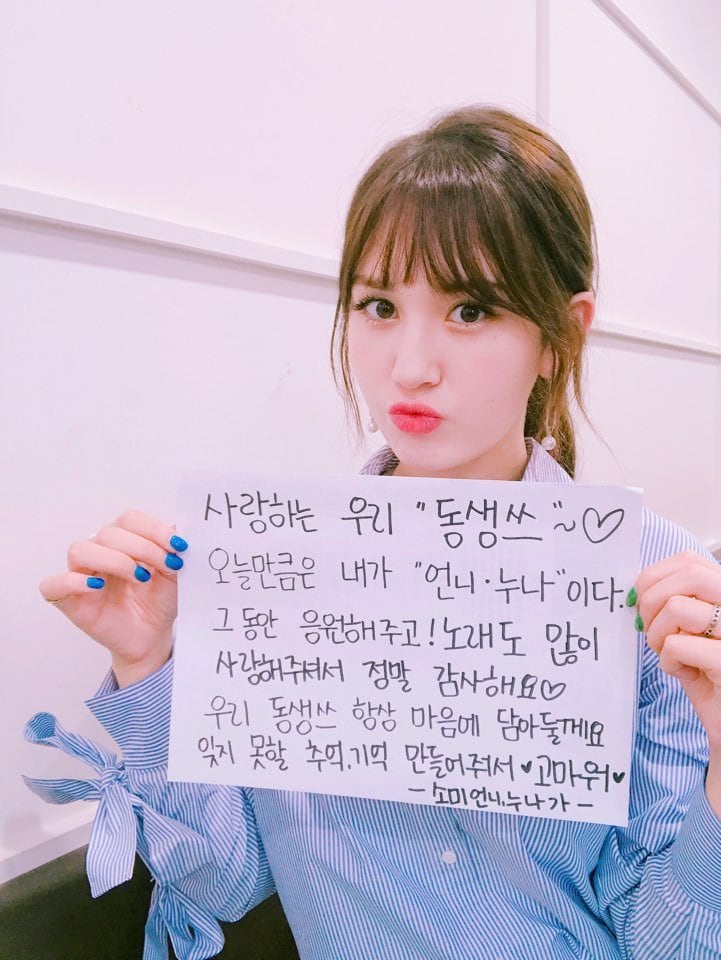 사랑하는 우리 "동생쓰"~♡
오늘만큼은 내가 "언니·누나"이다.
그동안 응원해주고! 노래도 많이
사랑해주셔서 정말 감사해요♡
우리 동생쓰 항상 마음에 담아둘게요
잊지 못할 추억.기억 만들어줘서 ♥고마워♥
- 소미언니.누나가 -